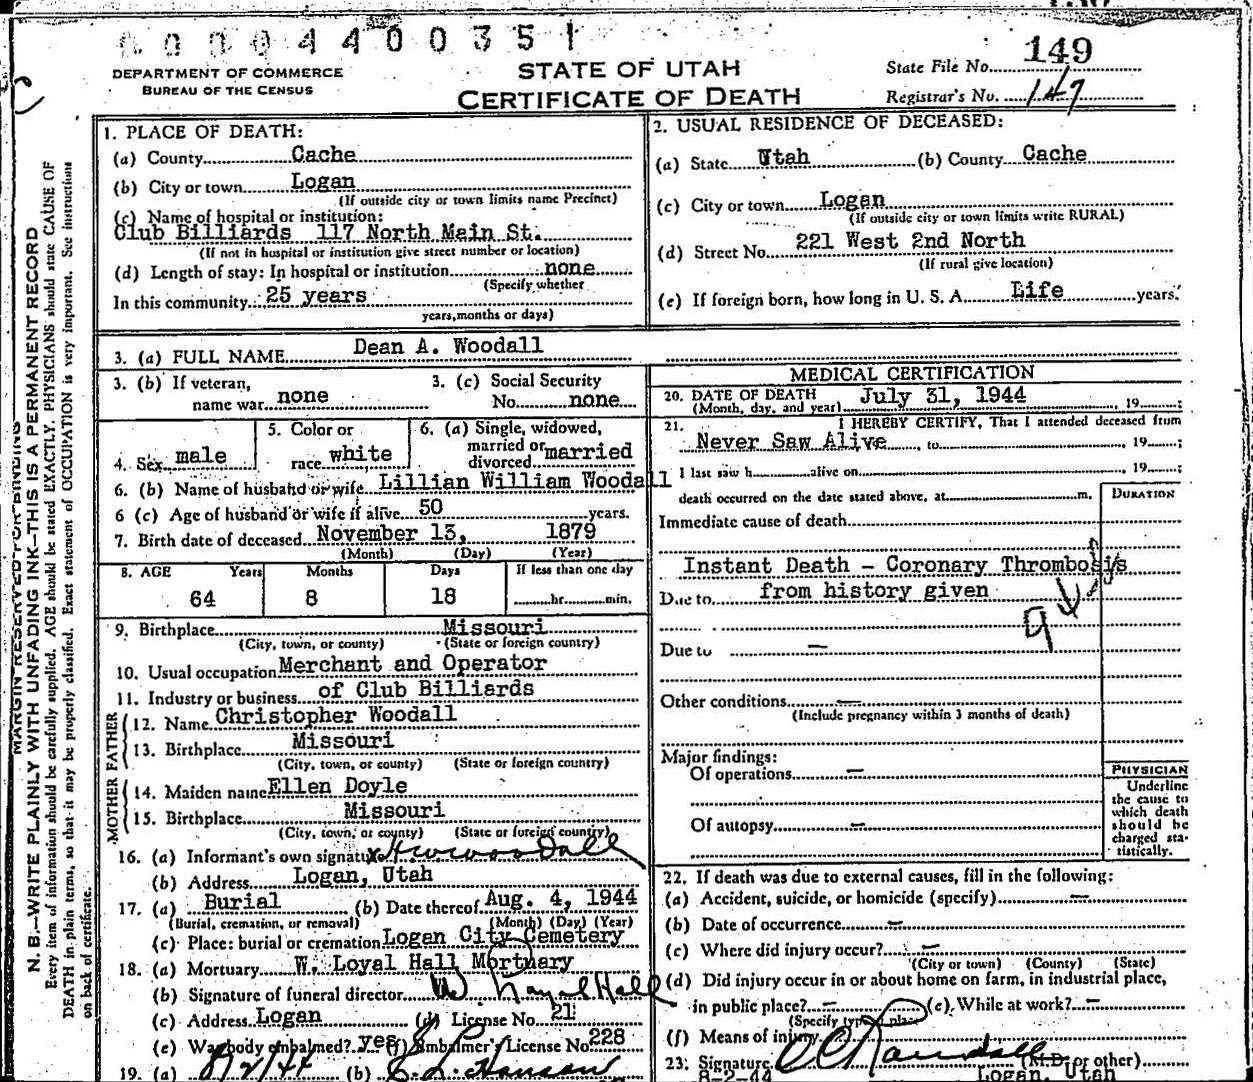 00004400351
DEPARTMENT OF COMMERCE
BUREAU OF THE CENSUS
STATE OF UTAH
CERTIFICATE OF DEATH
State File No. 149
Registrar's No. 147
MARGIN RESERVED FOR BINDING
N. B.—WRITE PLAINLY WITH UNFADING INK—THIS IS A PERMANENT RECORD
Every item of information should be carefully supplied. AGE should be stated EXACTLY. PHYSICIANS should state CAUSE OF
DEATH in plain terms, so that it may be properly classified. Exact statement of OCCUPATION is very important. See instructions
on back of certificate.
1. PLACE OF DEATH:
(a) County Cache
(b) City or town Logan
(If outside city or town limits name Precinct)
(c) Name of hospital or institution:
Club Billiards 117 North Main St.
(If not in hospital or institution give street number or location)
(d) Length of stay: In hospital or institution none
(Specify whether
In this community 25 years
years, months or days)
2. USUAL RESIDENCE OF DECEASED:
(a) State Utah (b) County Cache
(c) City or town Logan
(If outside city or town limits write RURAL)
(d) Street No. 221 West 2nd North
(If rural give location)
(e) If foreign born, how long in U. S. A. Life years.
3. (a) FULL NAME Dean A. Woodall
3. (b) If veteran, name war none
3. (c) Social Security No. none
4. Sex male
5. Color or race white
6. (a) Single, widowed, married or divorced married
6. (b) Name of husband or wife Lillian William Woodall
6 (c) Age of husband or wife if alive 50 years.
7. Birth date of deceased November 13, 1879
(Month) (Day) (Year)
8. AGE Years Months Days If less than one day
64 8 18 hr. min.
9. Birthplace Missouri
(City, town, or county) (State or foreign country)
10. Usual occupation Merchant and Operator
11. Industry or business of Club Billiards
FATHER
12. Name Christopher Woodall
13. Birthplace Missouri
(City, town, or county) (State or foreign country)
MOTHER
14. Maiden name Ellen Doyle
15. Birthplace Missouri
(City, town, or county) (State or foreign country)
16. (a) Informant's own signature x Woodall
(b) Address Logan, Utah
17. (a) Burial (b) Date thereof Aug. 4, 1944
(Burial, cremation, or removal) (Month) (Day) (Year)
(c) Place: burial or cremation Logan City Cemetery
18. (a) Mortuary W. Loyal Hall Mortuary
(b) Signature of funeral director W. Loyal Hall
(c) Address Logan (d) License No. 21
(e) Was body embalmed? yes (f) Embalmer's License No. 228
19. (a) 8/2/44 (b) Hanson
MEDICAL CERTIFICATION
20. DATE OF DEATH July 31, 1944, 19
(Month, day, and year)
21. I HEREBY CERTIFY, That I attended deceased from
Never Saw Alive, to 19 ;
I last saw h alive on 19 ;
death occurred on the date stated above, at m.
DURATION
Immediate cause of death
Instant Death - Coronary Thrombosis
Due to from history given
Due to —
Other conditions —
(Include pregnancy within 3 months of death)
Major findings:
Of operations —
Of autopsy —
PHYSICIAN
Underline
the cause to
which death
should be
charged sta-
tistically.
22. If death was due to external causes, fill in the following:
(a) Accident, suicide, or homicide (specify) —
(b) Date of occurrence —
(c) Where did injury occur? —
(City or town) (County) (State)
(d) Did injury occur in or about home on farm, in industrial place,
in public place? — (e) While at work? —
(Specify type of place)
(f) Means of injury
23. Signature (M.D. or other)
8-2-44 Logan, Utah